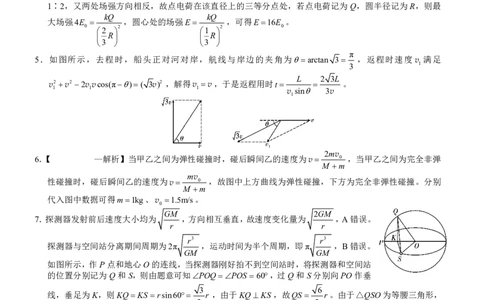 1∶2，又两处场强方向相反，故点电荷在该直径上的三等分点处，若点电荷记为 Q，圆半径记为 R，则最
大场强4E₀ = kQ/(2/3 R)²，圆心处的场强 E = kQ/(1/3 R)²，可得 E=16E₀。
5．如图所示，去程时，船头正对河对岸，航线与岸边的夹角为θ＝arctan √3＝π/3，返程时速度 v₁ 满足
v₁²＋v²－2v₁vcos(π－θ)＝(√3v)²，解得v₁＝v，于是返程用时t＝L/(v₁sinθ)＝2√3L/3v。
√3v
θ
v
θ
v
√3v
v₁
6.【
—解析】当甲乙之间为弹性碰撞时，碰后瞬间乙的速度为v＝2mv₀/(M＋m)，当甲乙之间为完全非弹
性碰撞时，碰后瞬间乙的速度为v＝mv₀/(M＋m)，故图中上方曲线为弹性碰撞，下方为完全非弹性碰撞。分别
代入图中数据可得m＝1kg、v₀＝1.5m/s。
7. 探测器发射前后速度大小均为√(GM/r)，方向相互垂直，故速度变化量为√(2GM/r)，A 错误。
探测器与空间站分离期间周期为2π√(r³/GM)，运动时间为半个周期，即π√(r³/GM)，B 错误。
如图所示，作 P 点和地心 O 的连线，当探测器刚好抬不到空间站时，将探测器和空间站
的位置分别记为 Q 和 S，则由题意可知∠POQ＝∠POS＝60°，过 Q 和 S 分别向 PO 作垂
线，垂足为 K，则KQ＝KS＝rsin60°＝√3/2 r，由于KQ⊥KS，故QS＝√6/2 r。由于△QSO为等腰三角形，
Q
P
K
O
S